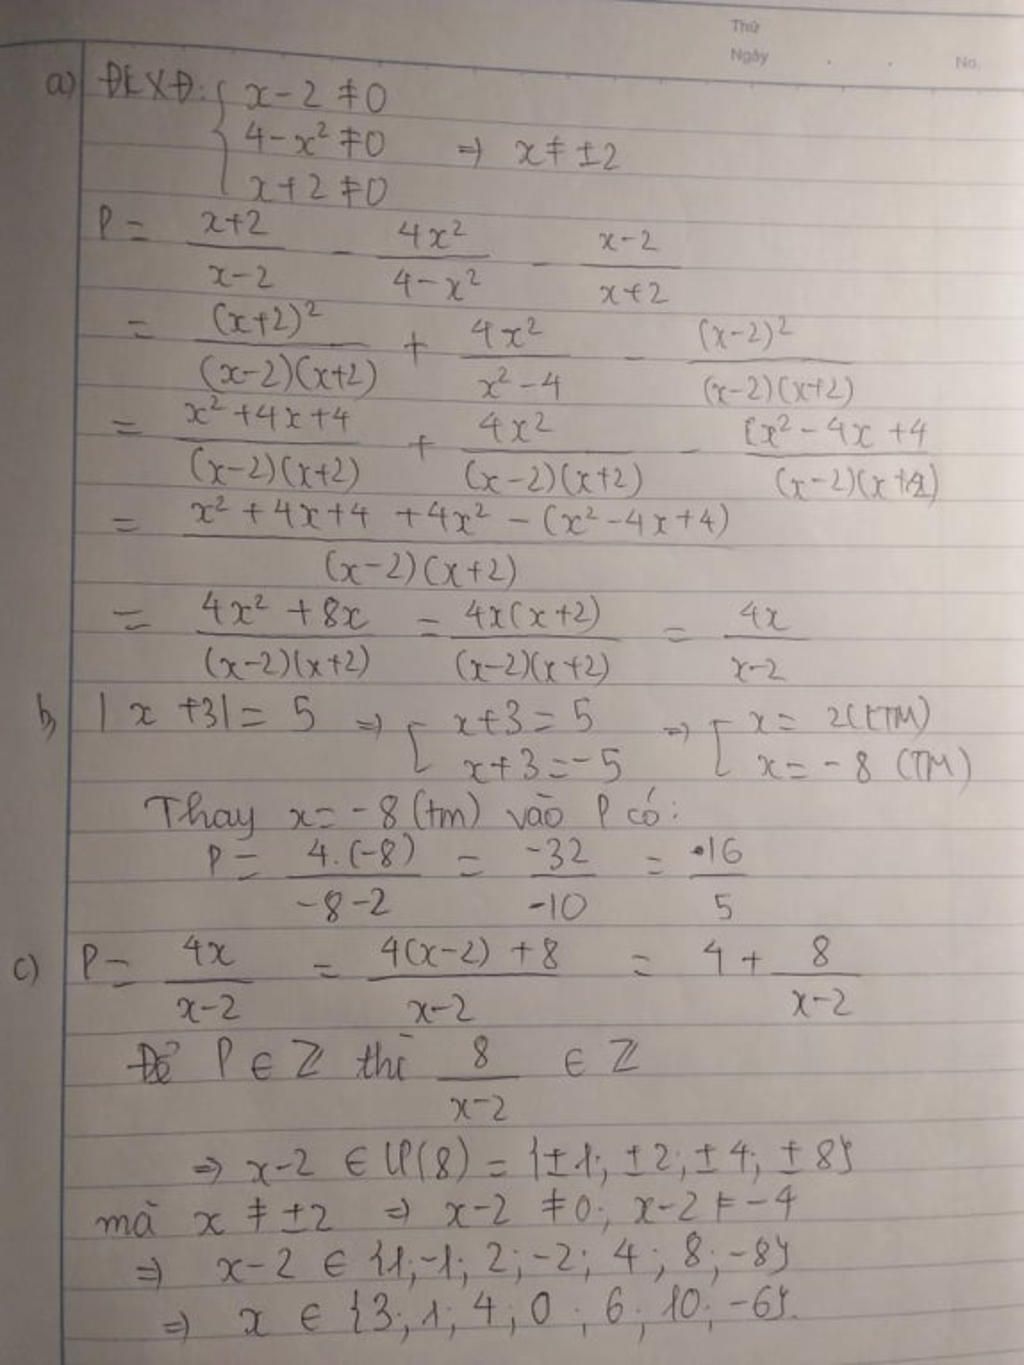 Thứ
Ngày . . No.
a) ĐKXĐ: { x-2 ≠ 0
4-x² ≠ 0 ⇒ x ≠ ±2
x+2 ≠ 0
P = (x+2)/(x-2) - 4x²/(4-x²) - (x-2)/(x+2)
= (x+2)²/((x-2)(x+2)) + 4x²/(x²-4) - (x-2)²/((x-2)(x+2))
= (x²+4x+4)/((x-2)(x+2)) + 4x²/((x-2)(x+2)) - (x²-4x+4)/((x-2)(x+2))
= (x²+4x+4+4x²-(x²-4x+4))/((x-2)(x+2))
= (4x²+8x)/((x-2)(x+2)) = 4x(x+2)/((x-2)(x+2)) = 4x/(x-2)
b) |x+3| = 5 ⇒ [ x+3 = 5 ⇒ [ x = 2 (KTM)
x+3 = -5 x = -8 (TM)
Thay x = -8 (tm) vào P có:
P = 4.(-8)/(-8-2) = -32/-10 = 16/5
c) P = 4x/(x-2) = (4(x-2)+8)/(x-2) = 4 + 8/(x-2)
Để P ∈ Z thì 8/(x-2) ∈ Z
⇒ x-2 ∈ Ư(8) = {±1; ±2; ±4; ±8}
mà x ≠ ±2 ⇒ x-2 ≠ 0; x-2 ≠ -4
⇒ x-2 ∈ {1; -1; 2; -2; 4; 8; -8}
⇒ x ∈ {3; 1; 4; 0; 6; 10; -6}.